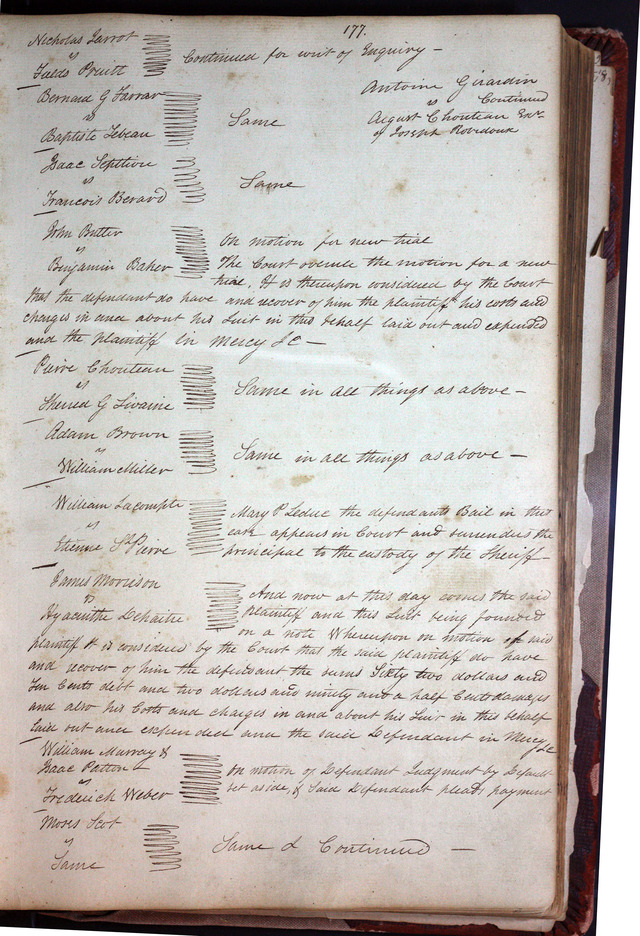 177.
Nicholas Jarrot
vs
Fields Pruitt
Continued for writ of Enquiry -
Bernard G Farrar
vs
Baptiste Lebeau
Same
Antoine Girardin
vs Continued
August Chouteau Exr
of Joseph Robidoux
Isaac
vs
Francois Berard
Same
John Butler
vs
Benjamin Baker
On motion for new trial
The Court overule the motion for a new
trial. It is thereupon considered by the Court
that the defendant do have and recover of him the plaintiff his costs and
charges in and about his Suit in this behalf laid out and expended
and the Plaintiff In Mercy &c -
Pierre Chouteau
vs
Sherred G
Same in all things as above -
Adam Brown
vs
William Miller
Same in all things as above -
William Lacompte
vs
Etienne St Pierre
Mary P Leduc the defendants Bail in this
case appears in Court and surrenders the
principal to the custody of the Sheriff
James Morrison
vs
Hyacinthe Dehaitre
And now at this day comes the said
Plaintiff and this Suit being founded
on a note Whereupon on motion of said
plaintiff It is considered by the Court that the said plaintiff do have
and recover of him the defendant the sums Sixty two dollars and
Ten Cents debt and two dollars and ninety and a half Cents damages
and also his Costs and charges in and about his Suit in this behalf
laid out and expended and the said Defendant in Mercy
&c
William Murray &
Isaac Patton
vs
Frederick Weber
On motion of Defendant Judgment by Default
set aside, & Said Defendant pleads payment
Moses Scot
vs
Same
Same & Continued -